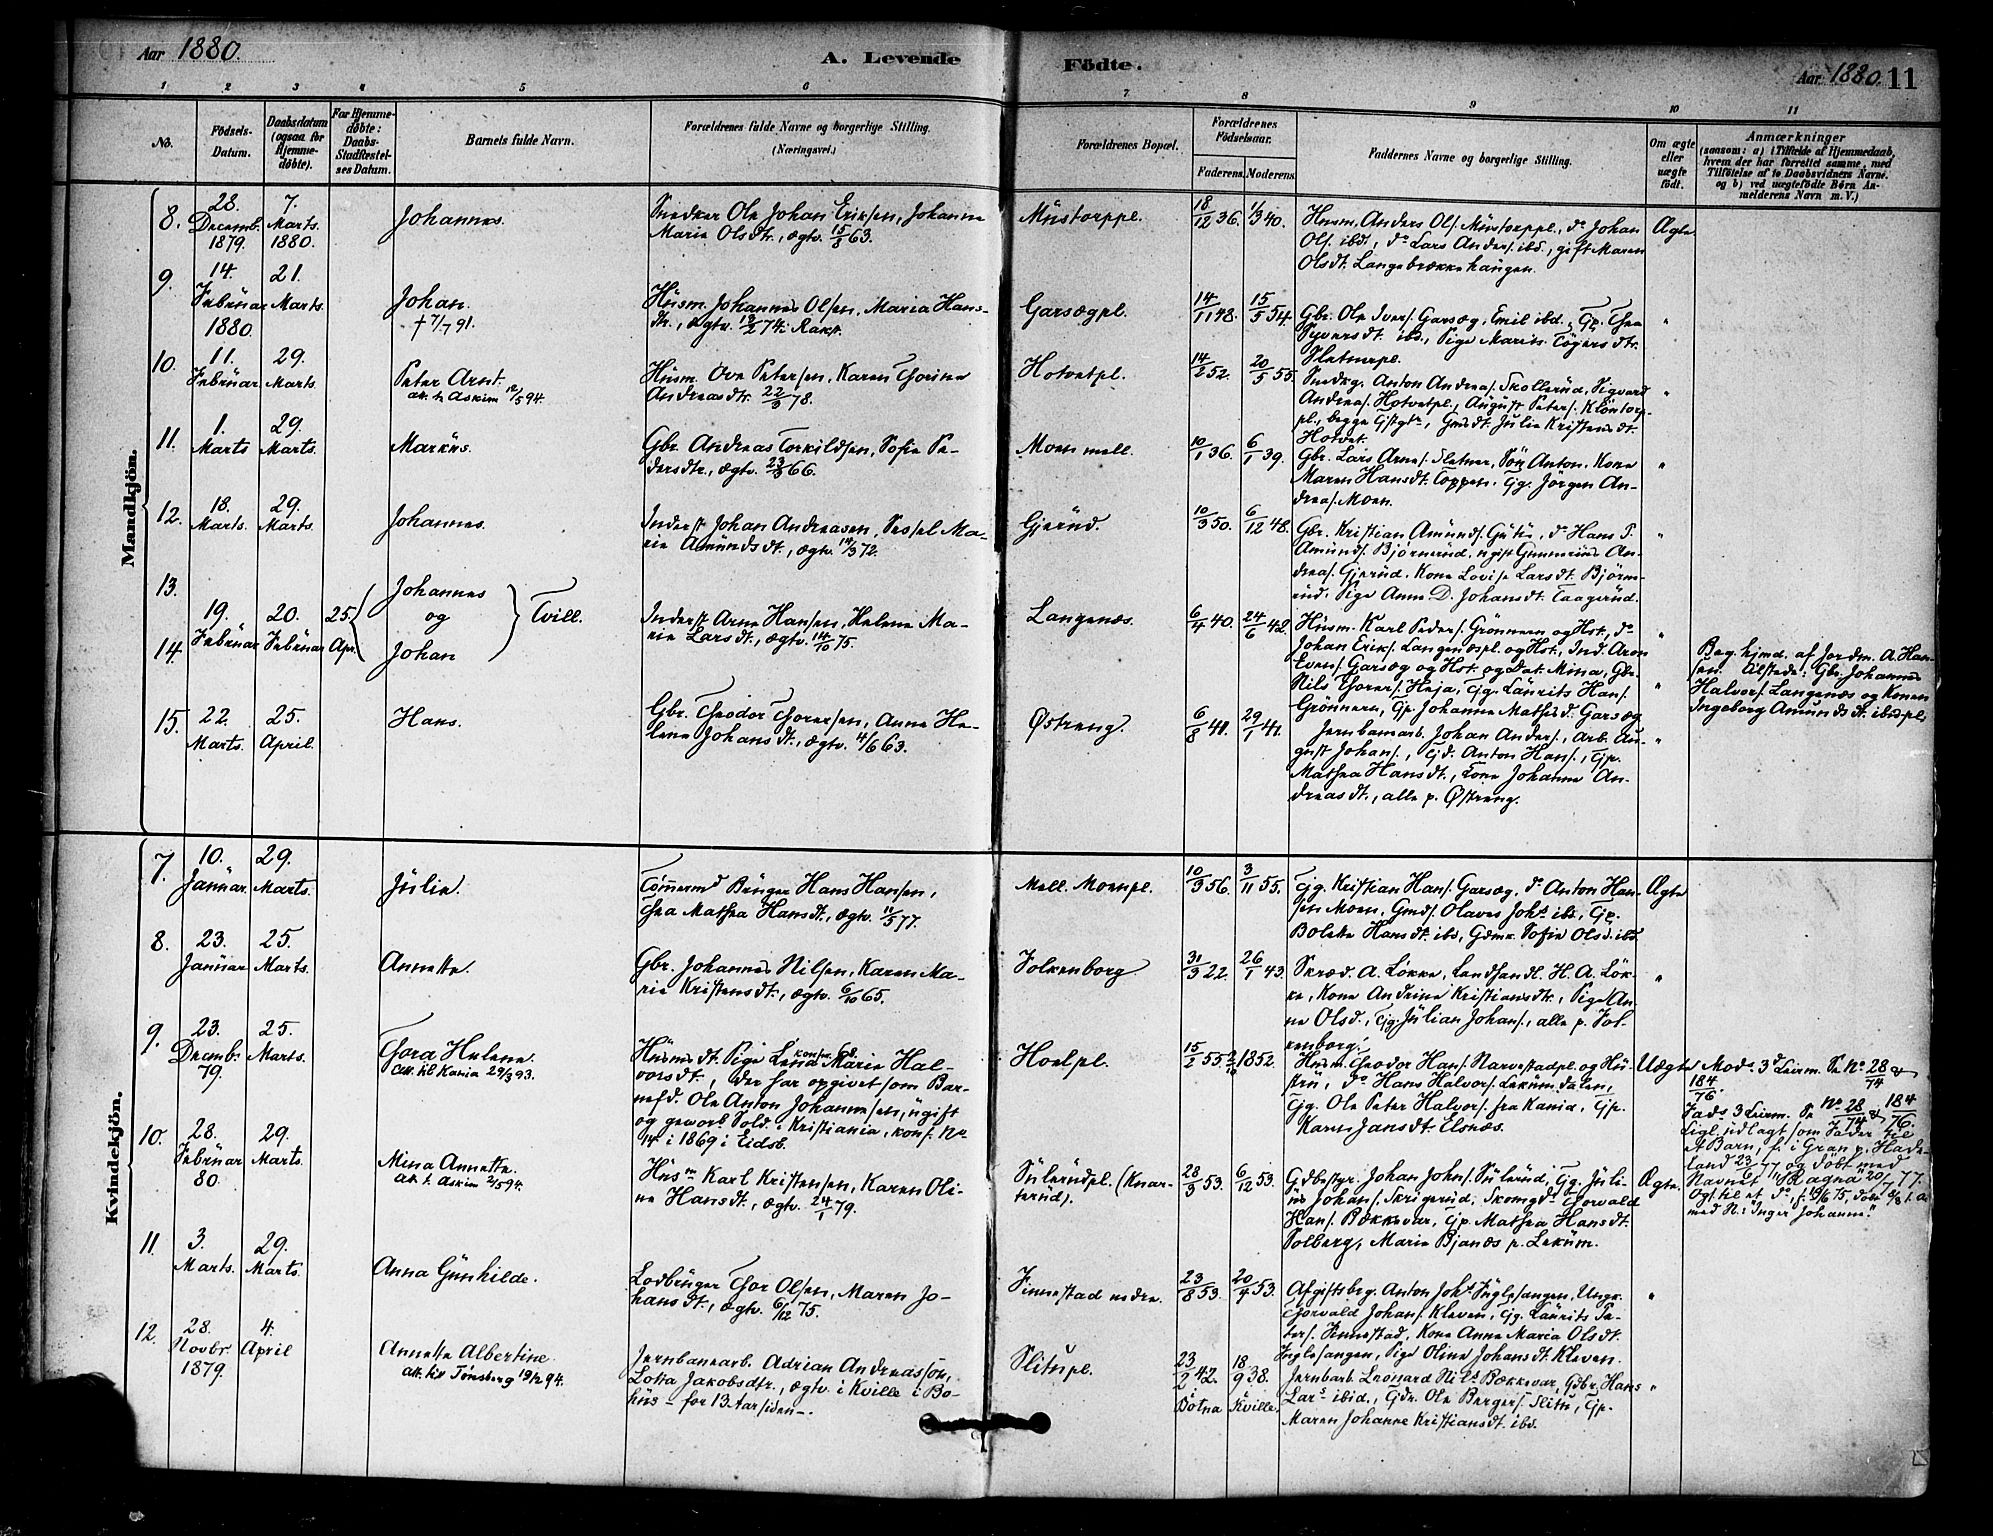 Aar 1880.
A. Levende Födte.
Aar 1880. 11
1 2 3 4 5 6 7 8 9 10 11
No.
Födsels-
Datum.
Daabsdatum
(ogsaa for
Hjemme-
døbte).
For Hjemme-
døbte:
Daabs-
Stadfæstel-
ses Datum.
Barnets fulde Navn.
Forældrenes fulde Navne og borgerlige Stilling.
(Næringsvei.)
Forældrenes Bopæl.
Forældrenes
Fødselsaar.
Faderens. Moderens.
Faddernes Navne og borgerlige Stilling.
Om ægte
eller
uægte
født.
Anmærkninger
(saasom: a) i Tilfælde af Hjemmedaab,
hvem der har forrettet samme, med
Tilföielse af to Daabsvidners Navne.
og b) ved uægtefödte Börn An-
melderens Navn m. V.)
Mandkjön.
8. 28. Decemb. 1879. 7. Marts. 1880.
Johannes.
Snedker Ole Johan Eriksen, Johanne
Marie Olsdtr., ægtv. 15/5 63.
Müstorppl.
18/12 36. 1/3 40.
Husm. Anders Ols. Müstorppl., do Johan
Ols. ibd., do Lars Anders. ibd., gift Maren
Olsdt. Langebrækkehaugen.
Ægte
9. 14. Februar 1880. 21. Marts.
Johan.
† 7/7 91.
Husm. Johannes Olsen, Maria Hans-
dtr., ægtv. 74. Rakst.
Garsegpl.
14/11 48. 15/5 54.
Gbr. Ole Ivers. Garseg, Emil ibd., Gp. Thea
Syversdt. ibd., Pige Marits Tögersdtr.
Sletnerpl.
"
10. 11. Februar 29. Marts.
Peter Arnt.
att. t. Askim 12/5 94.
Husm. Ove Petersen, Karen Thorine
Andreasdtr. 22/3 78.
Hotvetpl.
14/2 52. 20/5 55.
Snedkg. Anton Andreas. Skollerud, Sigvard
Andreas. Hotvetpl., August Peters. Klöntorp-
pl., begge, Gmdt. Julie Kristensdt.
Hotvet.
"
11. 1. Marts 29. Marts.
Markus.
Gbr. Andreas Torkildsen, Sofie Pe-
dersdtr., ægtv. 23/3 66.
Moen mell.
10/1 36. 6/1 39.
Gbr. Lars Arnes. Sletner, Sön Anton, Kone
Maren Hansdt. Toppen. Gg. Jörgen An-
dreas. Moen.
"
12. 18. Marts. 29. Marts.
Johannes.
Inderst Johan Andreasen, Sessel Ma-
rie Amundsdt., ægtv. 14/3 72.
Gjerud.
10/3 50. 6/12 48.
Gbr. Kristian Amunds. Gutu, do Hans P.
Amunds. Björnerud, ugift Gunnerius An-
dreas. Gjerud. Kone Lovise Larsdt. Björne-
rud. Pige Anne D. Johansdt. Taagerud.
"
13.
14.
19. Februar 20. Februar 25. Apr.
Johannes
og
Johan
Tvill.
Inderst Arne Hansen, Helene Ma-
rie Larsdt., ægtv. 14/10 75.
Langenæs.
6/4 40. 24/6 42.
Husm. Karl Peders. Grönnern og Hst., do
Johan Eriks. Langenæspl. og Hst., Ind. Aron
Evens. Garseg og Hst. og Dat. Mina, Gbr.
Nils Thores. Heja, Gg. Laurits Hans.
Grönnern, Gp. Johanne Mathisd. Garseg.
"
"
Beg. hjmd. af Jordm. A. Han-
sen. Tilstede: Gbr. Johannes
Halvors. Langenæs og Konen
Ingeborg Amundsdt. ibdpl.
15. 22. Marts. 25. April.
Hans.
Gbr. Theodor Thoresen, Anne He-
lene Johansdt., ægtv. 4/6 63.
Østreng.
6/8 41. 29/1 41.
Jernbanearb. Johan Anders., Arb. Au-
gust Johans., Gd. Anton Hans., Gp.
Mathea Hansdt., Kone Johanne An-
dreasdt., alle p. Østreng.
"
Kvindekjön.
7. 10. Januar. 29. Marts.
Julie.
Tömmermd Bruger Hans Hansen,
Thea Mathea Hansdt., ægtv. 11/5 77.
Mell. Moenpl.
10/3 56. 3/11 55.
Gg. Kristian Hans. Garseg, do Anton Han-
sen Moen, Gmds. Olaves Johs. ibd., Gp.
Bolette Hansdt. ibd, Gdmk. Sofie Olsd. ibd
Ægte
8. 23. Januar 25. Marts.
Annette.
Gbr. Johannes Nilsen, Karen Ma-
rie Kristensdt., ægtv. 6/10 65.
Folkenborg
31/3 22. 26/1 43.
Skræd. A. Løkke, Landhandl. H. A. Løk-
ke, Kone Andrine Kristiansdtr., Pige An-
ne Olsd., Gg. Julian Johans., alle p. Fol-
kenborg.
"
9. 23. Decemb. 79. 25. Marts.
Thora Helene.
att. til Kania 29/3 93.
Husmdt. Pige Lena Marie Hal-
vorsdt., der har opgivet som Bar-
nefd. Ole Anton Johannesen, ugift
og gevorb. Sold. i Kristiania, konf. No
14 i 1869 i Eidsb.
Hoelpl.
15/2 55. 1852.
Husm. Theodor Hans. Narvestadpl. og Hu-
stru, do Hans Halvors. Lekumdalen,
Gg. Ole Peter Halvors. fra Kania, Gp.
Karen Jansdt. Elsnæs.
Uægte
Mods 3d Leierm. Se No 28/74 &
184/76
Fads 3 Leierm. Se No 28/74 & 184/76.
Ligl. udlagt som Fader til
et Barn, f. i Gran p. Hade-
land 23/6 77 og døbt med
Navnet "Ragna" 20/7 77.
Ogs. til et do, f. 19/6 75, døbt 8/8 s. A.
med N: "Inger Johanne."
10. 28. Februar 80. 29. Marts.
Mina Annette.
att. t. Askim 2/5 94.
Husm Karl Kristensen, Karen Oli-
ne Hansdt., ægtv. 24/1 79.
Sulerudpl. (Knar-
terud).
28/9 53. 6/12 53.
Gdbestyr. Johan Johs. Sulerud, Gg. Juli-
us Johans. Skrigerud, Skomgd. Thorvald
Hans. Bækkevar, Gp. Mathea Hansdt.
Solberg, Marie Bjanæs p. Lekum.
Ægte.
11. 3. Marts. 29. Marts.
Anna Gunhilde.
Lodbruger Thor Olsen, Maren Jo-
hansdt., ægtv. 6/12 75.
Finnestad nedre.
23/8 53. 20/4 53.
Afgiftsbrg. Anton Johs. Fuglesangen, Ungk.
Thorvald Johans. Kleven, Gg. Laurits Pe-
ters. Finnestad, Kone Anne Maria Olsdt.
Fuglesangen, Pige Oline Johansdt. Kleven.
"
12. 28. Novbr. 1879. 4. April
Annette Albertine.
att. til Tønsberg 94.
Jernbanearb. Adrian Andreassön,
Lotta Jakobsdtr., ægtv. i Kville i Bo-
hus – for 13 Aar siden –.
Slitupl.
23/2 42. i Botna 18/9 38. Kville.
Jernbarb. Leonard Nils. Bækkevar, Gdbr. Hans
Lars. ibid., Gdr. Ole Bergers. Slitu, Gp.
Maren Johanne Kristiansdt. ibd.
"